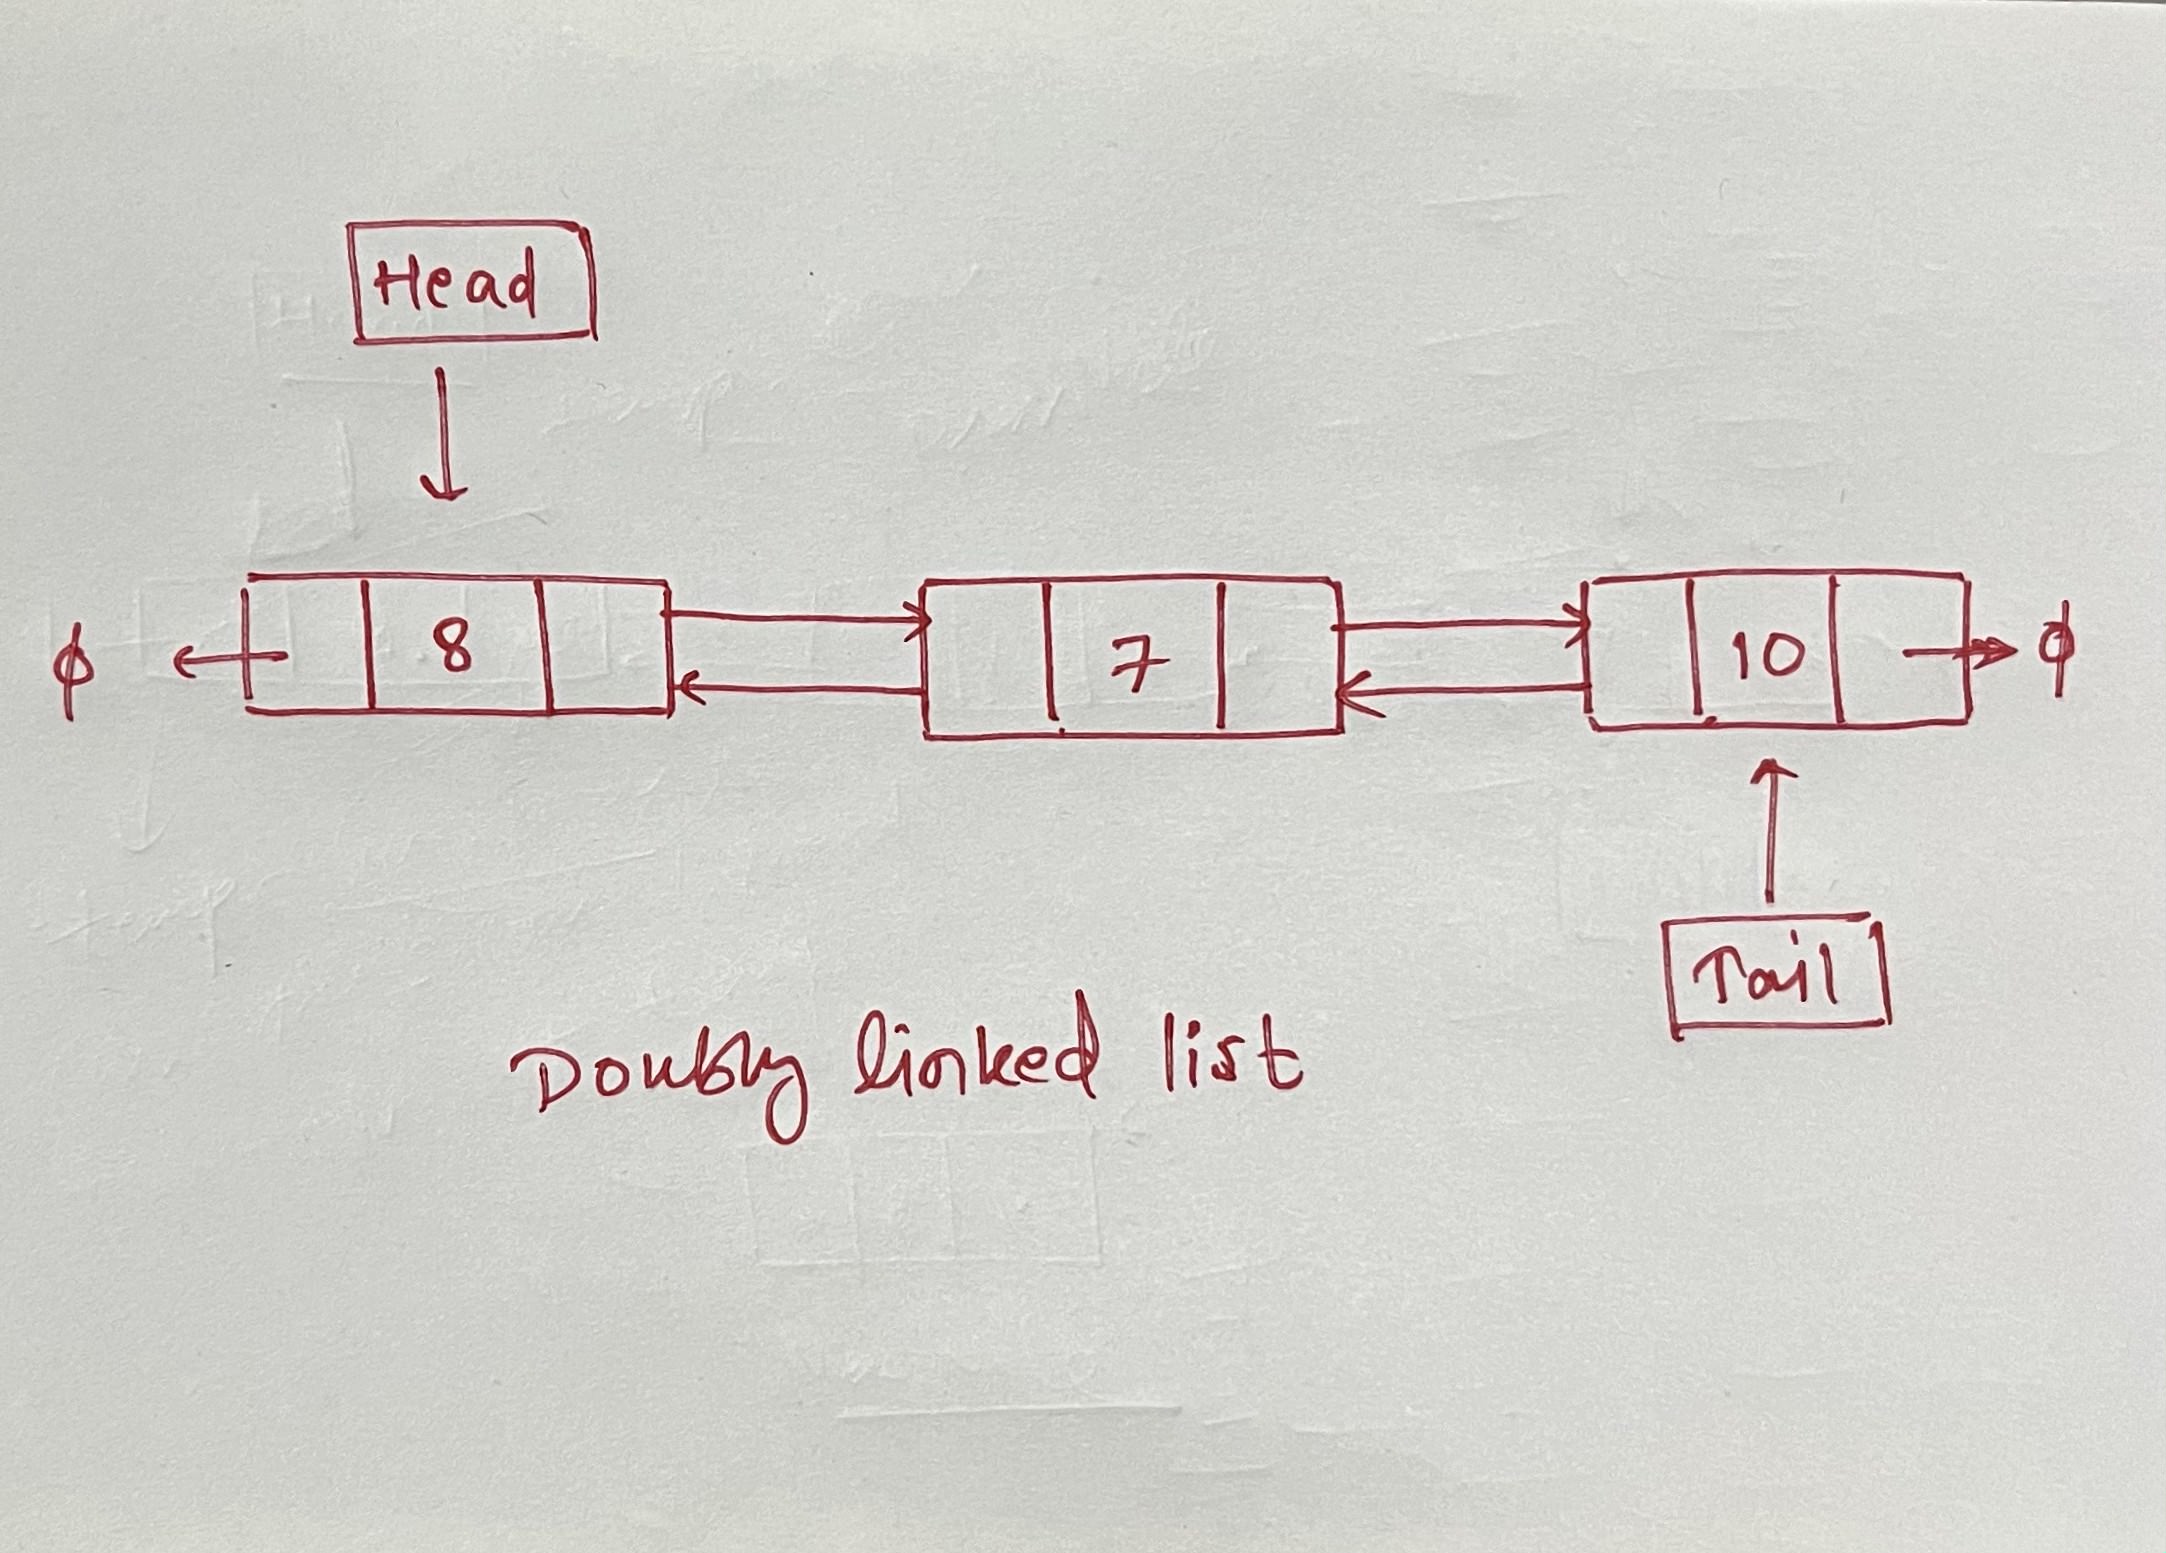 Head
ϕ 8 7 10 ϕ
Tail
Doubly linked list